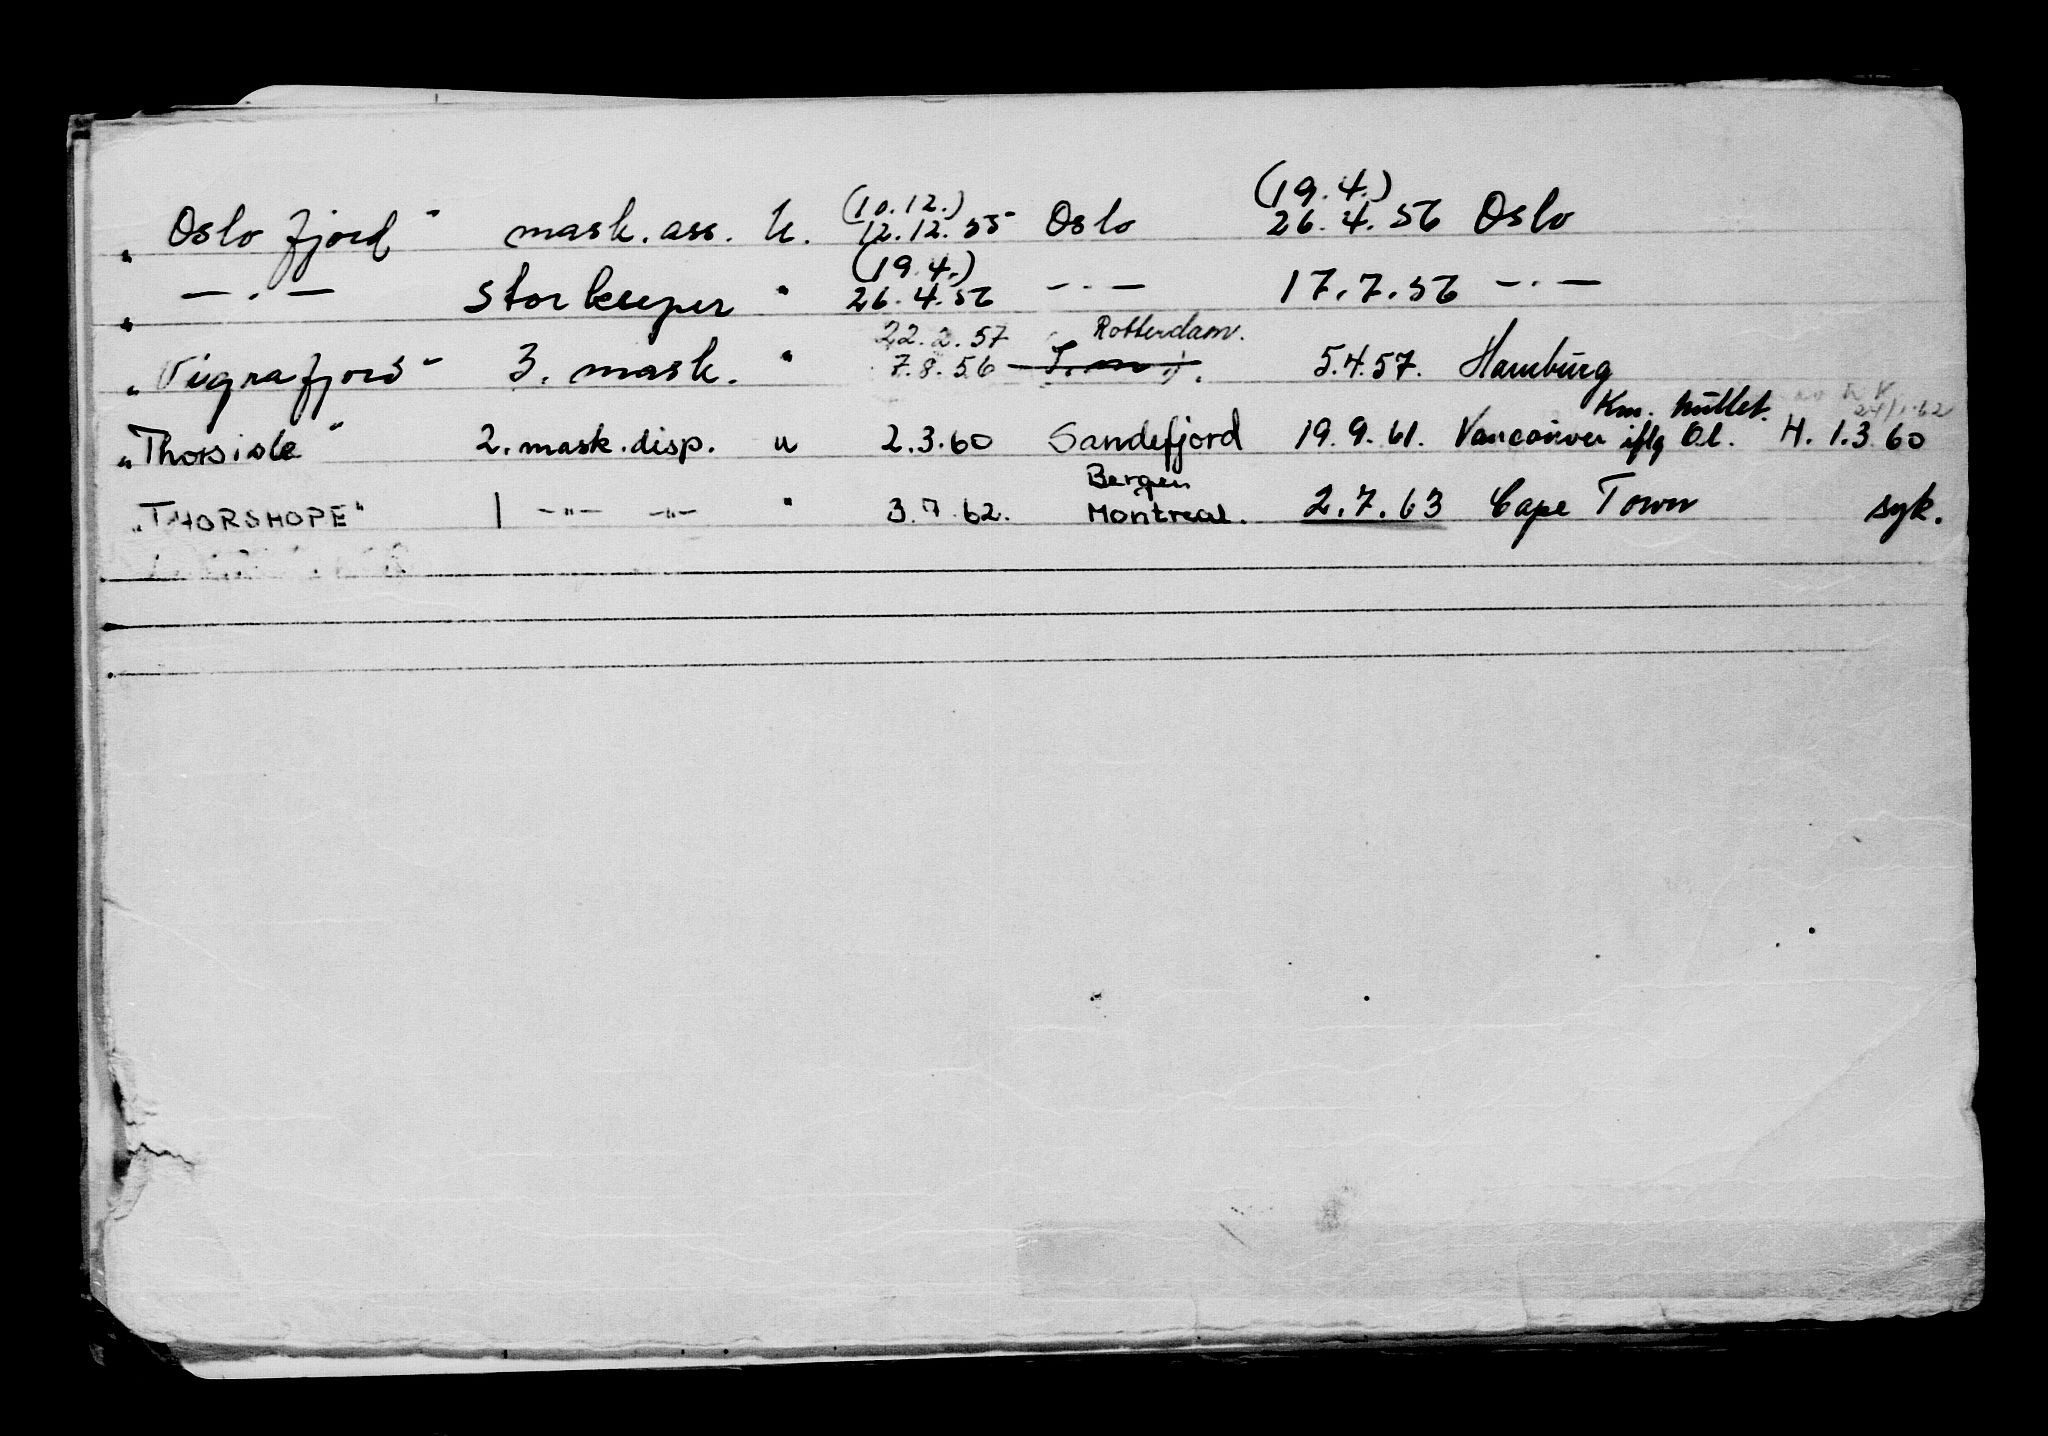 (10.12.) (19.4.)
„Oslofjord" mask. ass. u. 12.12.55 Oslo 26.4.56 Oslo
(19.4.)
„ —·— storkeeper " 26.4.56 —·— 17.7.56 —·—
22.2.57 Rotterdam.
„Vigrafjord" 3. mask. " 7.8.56 5.4.57. Hamburg
Km. nullet. 24/1-62
„Thorsisle" 2. mask. disp. u 2.3.60 Sandefjord 19.9.61. Vancouver iflg Ol. H. 1.3.60
Bergen
„THORSHOPE" 1 —"— —"— " 3.7.62. Montreal. 2.7.63 Cape Town syk.